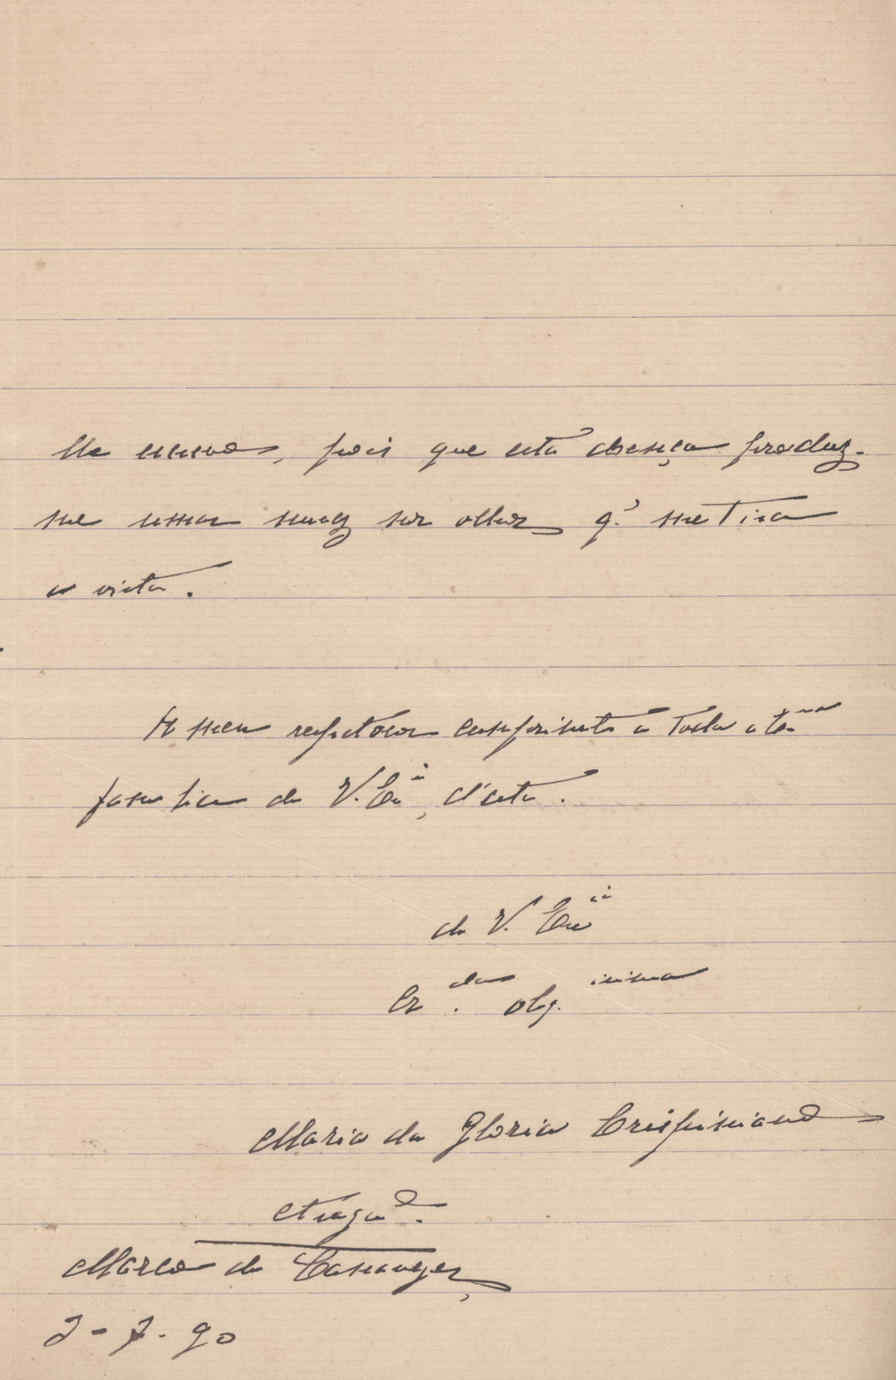 me escuso, pois que esta doença produz-
me uma nuvez nos olhos q.' me tira
a vista.
O meu respeitoso comprimento a toda a Ex.ma
familia de V. Ex.a, d'esta.
de V. Ex.cia
Cr.da obg.issima
Maria da Gloria Crispiniano
Marco de Canavezes,
2-7-90